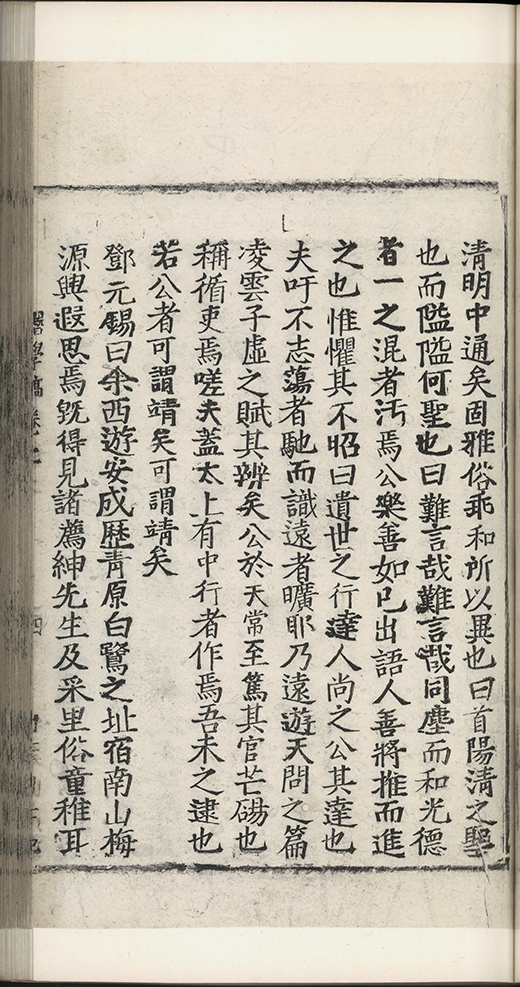 清明中通矣固雅俗乖和所以異也曰首陽清之聖
也而隘隘何聖也曰難言哉難言哉同塵而和光德
者一之混者汚焉公樂善如己出語人善將推而進
之也惟懼其不昭曰遺世之行達人尚之公其達也
夫吁不志蕩者馳而識遠者曠耶乃遠遊天問之篇
凌雲子虛之賦其辨矣公於天常至篤其官芒碭也
稱循吏焉嗟夫蓋太上有中行者作焉吾未之逮也
若公者可謂靖矣可謂靖矣
鄧元錫曰余西遊安成歴青原白鷺之址宿南山梅
源興遐思焉旣得見諸薦紳先生及采里俗童稚耳